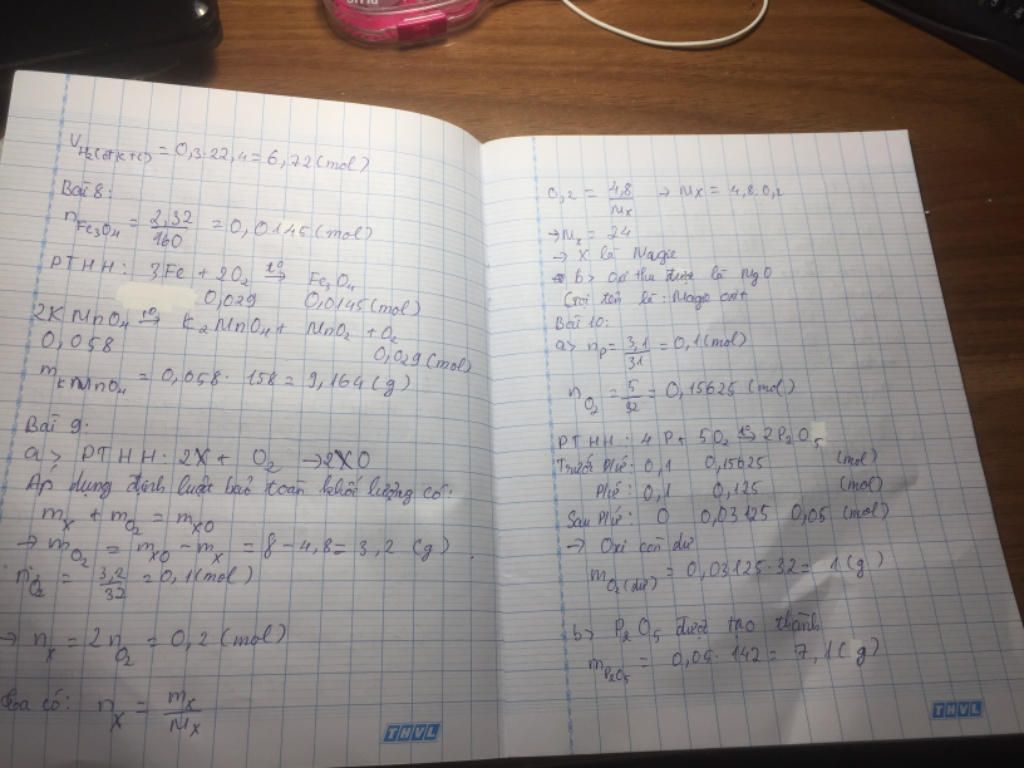 V H₂(đktc) = 0,3.22,4 = 6,72 (mol)
Bài 8:
nFe₃O₄ = 2,32/160 = 0,0145 (mol)
PTHH: 3Fe + 2O₂ t⁰→ Fe₃O₄
0,029 0,0145 (mol)
2KMnO₄ t⁰→ K₂MnO₄ + MnO₂ + O₂
0,058 0,029 (mol)
mKMnO₄ = 0,058 . 158 = 9,164 (g)
Bài 9:
a> PTHH: 2X + O₂ → 2XO
Áp dụng định luật bảo toàn khối lượng có:
mX + mO₂ = mXO
→ mO₂ = mXO - mX = 8 - 4,8 = 3,2 (g)
nO₂ = 3,2/32 = 0,1 (mol)
→ nX = 2nO₂ = 0,2 (mol)
có: nX = mX/MX
THVL
0,2 = 4,8/MX → MX = 4,8:0,2
→ MX = 24
→ X là Magie
b> Oxit thu được là MgO
Gọi tên là: Magie oxit
Bài 10:
a> nP = 3,1/31 = 0,1 (mol)
nO₂ = 5/32 = 0,15625 (mol)
PTHH: 4P + 5O₂ t⁰→ 2P₂O₅
Trước Pứ: 0,1 0,15625 (mol)
Pứ: 0,1 0,125 (mol)
Sau Pứ: 0 0,03125 0,05 (mol)
→ Oxi còn dư
mO₂(dư) = 0,03125.32 = 1 (g)
b> P₂O₅ được tạo thành
mP₂O₅ = 0,05 . 142 = 7,1 (g)
THVL